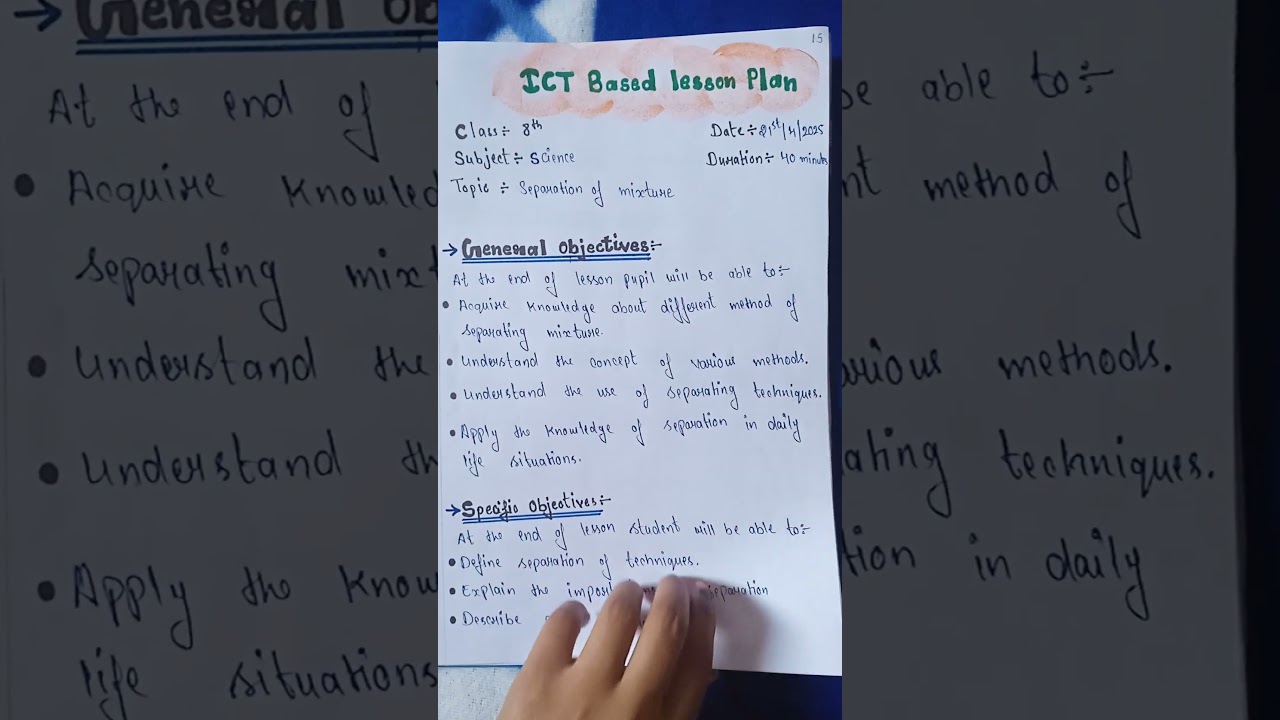 15
ICT Based lesson Plan
Class÷ 8th
Date÷ 21st/4/2025
Subject÷ Science
Duration÷ 40 minuts
Topic ÷ Separation of mixture
→ General Objectives:-
At the end of lesson pupil will be able to:-
• Acquire knowledge about different method of
separating mixture.
• Understand the concept of various methods.
• Understand the use of separating techniques.
• Apply the knowledge of separation in daily
life situations.
→ Specific Objectives:-
At the end of lesson student will be able to:-
• Define separation of techniques.
• Explain the separation
• Describe